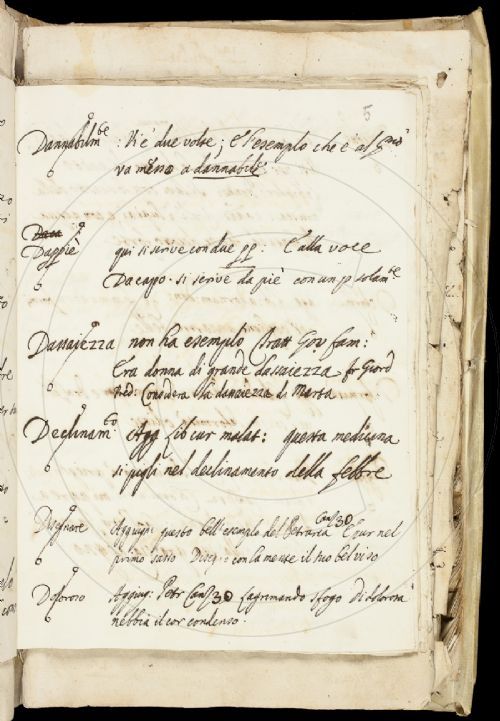 5
Dannabilmte : Vi è due volte; E l'esemplo che è al
va messo a dannabile
Daca
Dappiè qui si scrive con due pp. E alla voce
Dacapo. si scrive da piè con un p solamte
Dassaiezza non ha esemplo Tratt Gov fam:
Era donna di grande dassaiezza fr Giord
Pred: Considera la dassiezza di Marta
Declinamto Agg lib cur malat: questa medicina
si pigli nel declinamento della febbre
Disegnare Aggiugni questo bell'esemplo del Petrarca Canz 30 E pur nel
primo sasso Disegno con la mente il suo bel viso
Doloroso Aggiug: Petr Canz 30 Lagrimando sfogo Di dolorosa
nebbia il cor condenso.